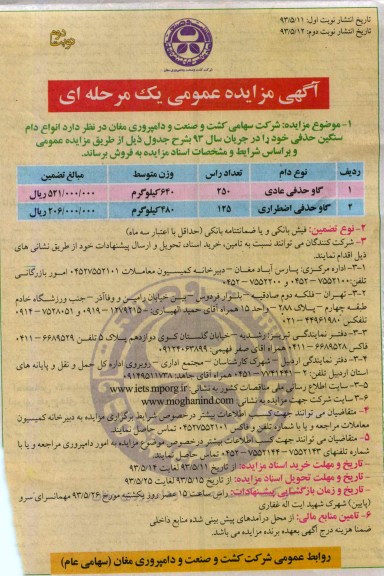 تاریخ انتشار نوبت اول: ۹۳/۵/۱۱
تاریخ انتشار نوبت دوم: ۹۳/۵/۱۲
نوبت دوم
آگهی مزایده عمومی یک مرحله ای
۱-موضوع مزایده: شرکت سهامی کشت و صنعت و دامپروری مغان در نظر دارد انواع دام
سنگین حذفی خود را در جریان سال ۹۳ بشرح جدول ذیل از طریق مزایده عمومی
و براساس شرایط و مشخصات اسناد مزایده به فروش برساند.
ردیف نوع دام تعداد راس وزن متوسط مبالغ تضمین
۱ گاو حذفی عادی ۲۵۰ ۶۴۰کیلوگرم ۵۲۱/۰۰۰/۰۰۰ ریال
۲ گاو حذفی اضطراری ۱۲۵ ۴۸۰کیلوگرم ۲۰۶/۰۰۰/۰۰۰ ریال
۲- نوع تضمین: فیش بانکی و یا ضمانتنامه بانکی (حداقل با اعتبار سه ماه)
۳- شرکت کنندگان می توانند نسبت به تامین، خرید اسناد، تحویل و ارسال پیشنهادات خود از طریق نشانی های
ذیل اقدام نمایند.
۳-۱- اداره مرکزی: پارس آباد مغان - دبیرخانه کمیسیون معاملات ۰۴۵۲۷۵۵۲۱۰۱ امور بازرگانی
تلفن: ۷۵۵۲۱۰۰-۰۴۵۲ و ۷۵۵۲۲۰۰-۰۴۵۲
۳-۲- تهران - فلکه دوم صادقیه - بلوار فردوس - بین خیابان رامین و وفاآذر - جنب ورزشگاه خادم
طبقه چهارم - پلاک ۲۸۸ - واحد ۱۵ همراه آقای حمید الهیاری:
تلفکس: ۴۴۹۶۱۹۸۰-۰۲۱
۳-۳- دفتر نمایندگی تبریز: رشدیه - خیابان گلستان کوی دوازدهم پلاک ۵ تلفن ۶۶۸۹۵۲۹-۰۴۱۱
فاکس ۶۶۸۹۵۲۸-۰۴۱۱ همراه آقای صفر فهیمی:
۳-۴- دفتر نمایندگی اردبیل - شهرک کارشناسان - مجتمع اداری - روبروی اداره کل حمل و نقل و پایانه های
استان اردبیل تلفن: ۲-۷۷۴۱۴۴۱-۰۴۵۱ همراه آقای جاهد:
۳-۵- سایت اطلاع رسانی ملی مناقصات کشور به نشانی: www.iets.mporg.ir
۳-۶ سایت شرکت جهت مزایده به نشانی: www.moghanind.com
۴- متقاضیان می توانند جهت کسب اطلاعات بیشتر در خصوص شرایط برگزاری مزایده به دبیرخانه کمیسیون
معاملات مراجعه و یا با شماره تلفن و فاکس ۰۴۵۲۷۵۵۲۱۰۱ تماس حاصل نمایند.
۵- متقاضیان می توانند جهت کسب اطلاعات بیشتر درخصوص موضوع مزایده به امور دامپروری مراجعه و یا با
شماره تلفنهای ۷۵۵۲۱۴۳-۷۵۵۲۱۴۴-۰۴۵۲ تماس حاصل نمایند.
- تاریخ و مهلت خرید اسناد مزایده: از تاریخ ۹۳/۵/۱۱ لغایت ۹۳/۵/۱۴
- تاریخ و مهلت تحویل اسناد مزایده: از تاریخ ۹۳/۵/۱۵ لغایت ۹۳/۵/۲۵
- تاریخ و زمان بازگشایی پیشنهادات: راس ساعت ۱۵ عصر روز یکشنبه مورخ ۹۳/۵/۲۶ مهمانسرای سرو
(پایین) شهرک شهید آیت اله غفاری
۶- تامین منابع مالی: از محل درآمدهای پیش بینی شده منابع داخلی
ضمنا هزینه درج آگهی بعهده برنده مزایده می باشد.
روابط عمومی شرکت کشت و صنعت و دامپروری مغان (سهامی عام)